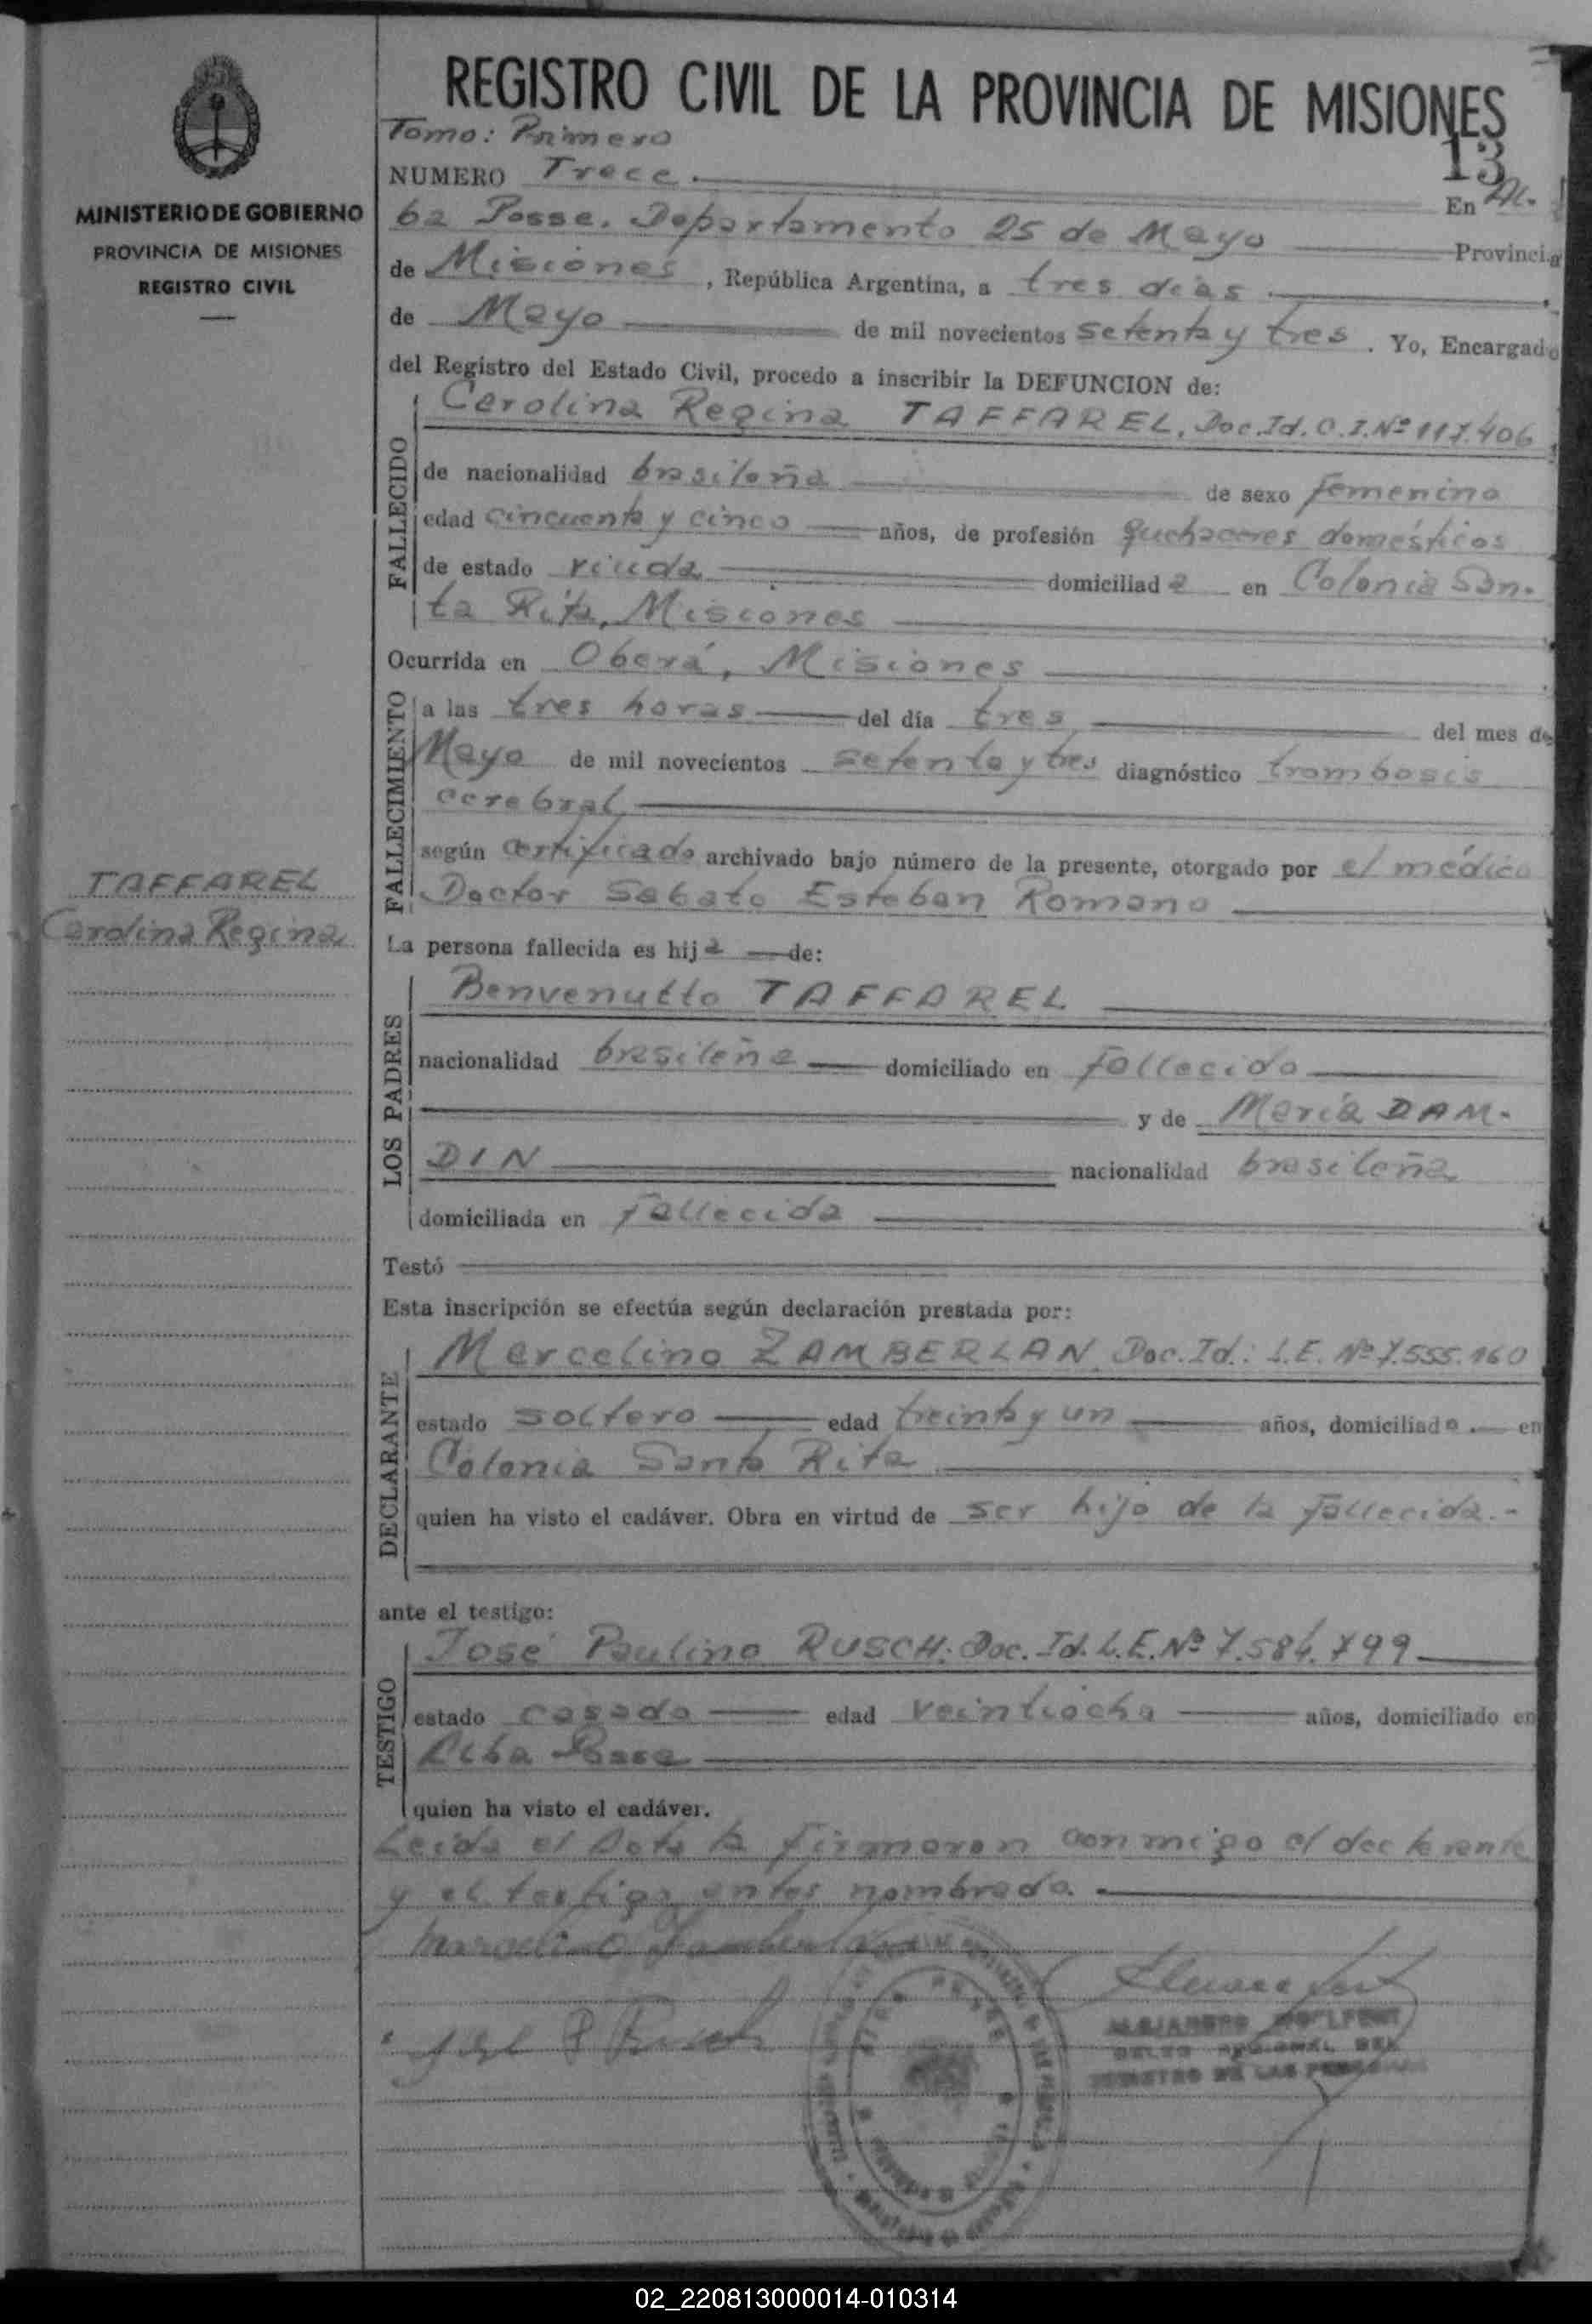 REGISTRO CIVIL DE LA PROVINCIA DE MISIONES
Tomo: Primero
13
NUMERO Trece.
En Al-
ba Posse. Departamento 25 de Mayo Provincia
de Misiones, República Argentina, a tres días
de Mayo de mil novecientos setenta y tres. Yo, Encargado
del Registro del Estado Civil, procedo a inscribir la DEFUNCION de:
Carolina Regina TAFFAREL, Doc. Id. C.I. Nº 117.406
FALLECIDO
de nacionalidad brasileña de sexo femenino
edad cincuenta y cinco años, de profesión quehaceres domésticos
de estado viuda domiciliada en Colonia San-
ta Rita, Misiones
Ocurrida en Oberá, Misiones
FALLECIMIENTO
a las tres horas del día tres del mes de
Mayo de mil novecientos setenta y tres diagnóstico trombosis
cerebral
según certificado archivado bajo número de la presente, otorgado por el médico
Doctor Sabato Esteban Romano
La persona fallecida es hija de:
LOS PADRES
Benvenutto TAFFAREL
nacionalidad brasileña domiciliado en fallecido
y de María DAM-
DIN nacionalidad brasileña
domiciliada en fallecida
Testó
Esta inscripción se efectúa según declaración prestada por:
DECLARANTE
Marcelino ZAMBERLAN Doc. Id.: L.E. Nº 7.555.160
estado soltero edad treinta y un años, domiciliado en
Colonia Santa Rita
quien ha visto el cadáver. Obra en virtud de ser hijo de la fallecida.-
ante el testigo:
TESTIGO
José Paulino RUSCH: Doc. Id. L.E. Nº 7.584.799
estado casado edad veintiocho años, domiciliado en
Alba Posse
quien ha visto el cadáver.
Leida el Acta la firmaron conmigo el declarante
y el testigo antes nombrado.
Marcelino Zamberlan
José P Rusch
ALEJANDRO
REGIONAL DEL
REGISTRO DE LAS PERSONAS
MINISTERIO DE GOBIERNO
PROVINCIA DE MISIONES
REGISTRO CIVIL
TAFFAREL
Carolina Regina
02_220813000014-010314